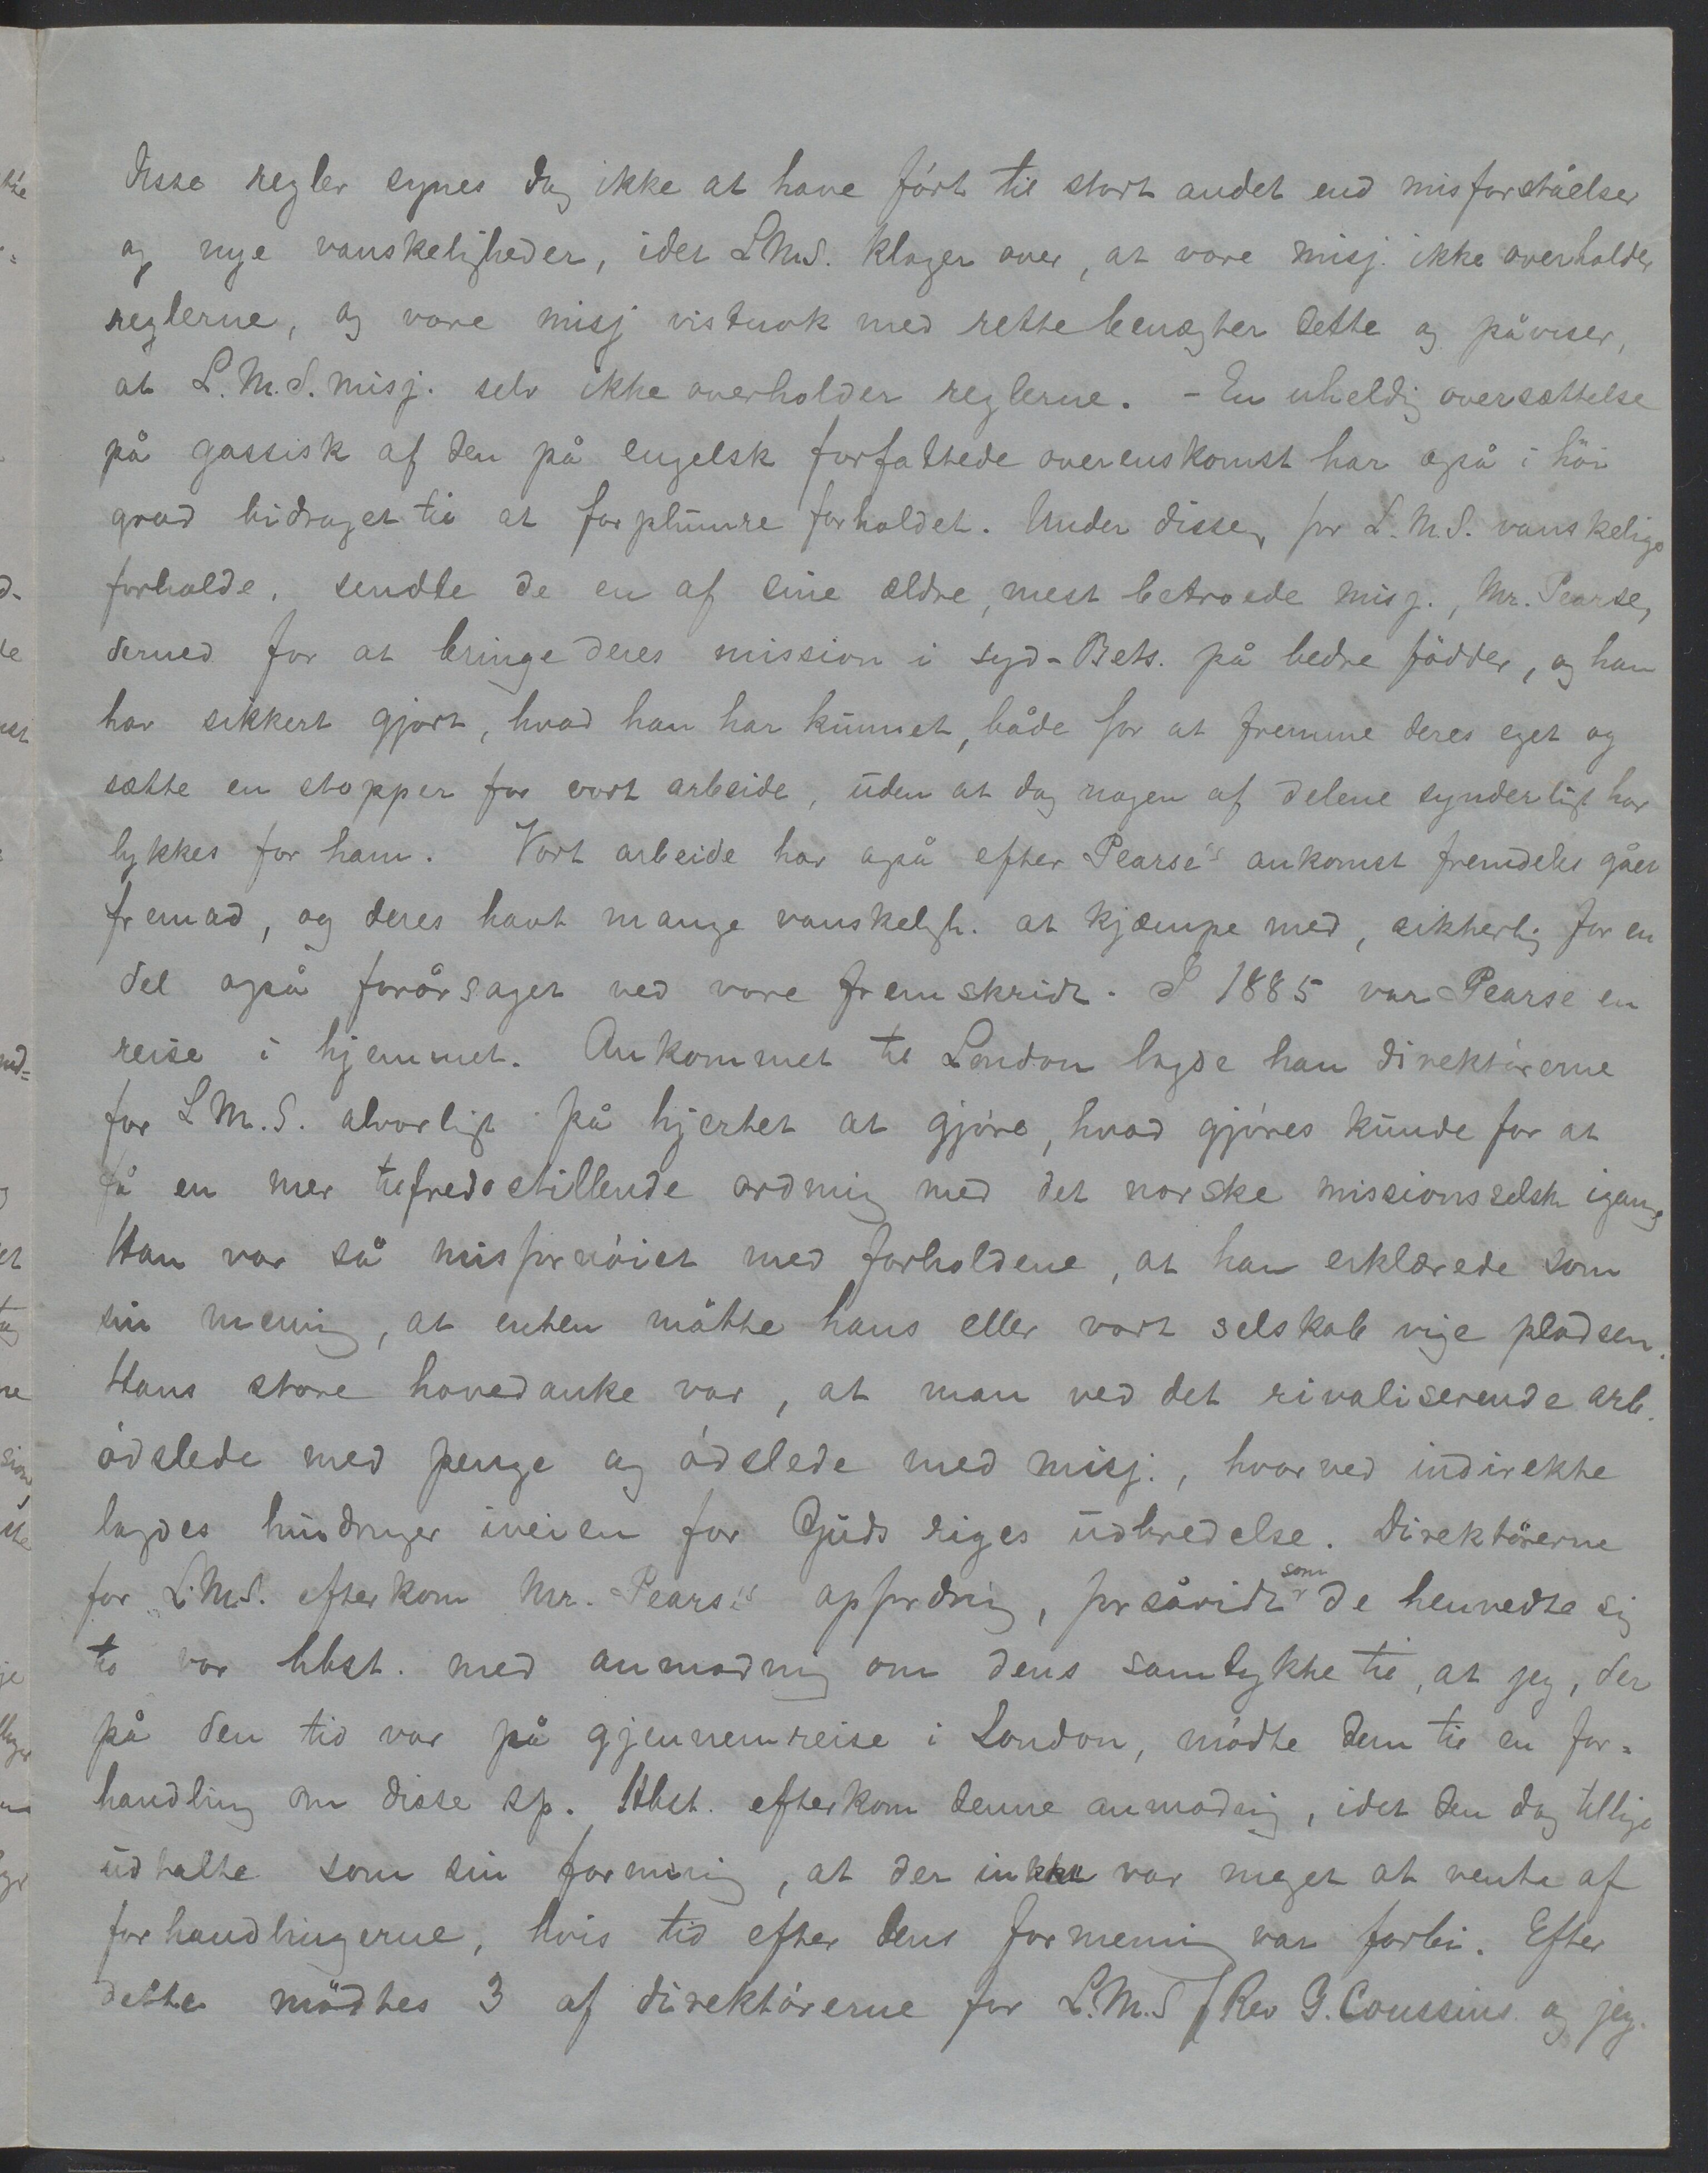 Disse regler synes dog ikke at have ført til stort andet end misforståelser
og nye vanskeligheder, idet L.M.S. klager over, at vore misj. ikke overholder
reglerne, og vore misj vistnok med rette benægter dette og påviser,
at L.M.S. misj. selv ikke overholder reglerne. - En uheldig oversættelse
på gassisk af den på engelsk forfattede overenskomst har også i höi
grad bidraget til at forplumre forholdet. Under disse, for L.M.S. vanskelige
forholde, sendte de en af sine ældre, mest betroede misj., Mr. Pearse,
derned for at bringe deres mission i syd-Bets. på bedre födder, og han
har sikkert gjort, hvad han har kunnet, både for at fremme deres eget og
sætte en stopper for vort arbeide, uden at dog nogen af delene synderligt har
lykkes for ham. Vort arbeide har også efter Pearse's ankomst fremdeles gået
fremad, og deres havt mange vanskeligh. at kjæmpe med, sikkerlig for en
del også forårsaget ved vore fremskridt. I 1885 var Pearse en
reise i hjemmet. Ankommet til London lagde han direktørerne
for L.M.S. alvorligt på hjertet at gjøre, hvad gjøres kunde for at
få en mer tilfredsstillende ordning med det norske missionsselsk igang
Han var så misfornøiet med forholdene, at han erklærede som
sin mening, at enten måtte hans eller vort selskab vige pladsen.
Hans store hovedanke var, at man ved det rivaliserende arb.
ødslede med penge og ødslede med misj., hvorved indirekte
lagdes hindringer iveien for Guds riges udbredelse. Direktörerne
for L.M.S. efterkom Mr. Pearse's opfordring, forsåvidt som de henvendte sig
til vor hbst. med anmodning om dens samtykke til, at jeg, der
på den tid var på gjennemreise i London, mødte dem til en for-
handling om disse sp. Hbst. efterkom denne anmodning, idet den dog tillige
udtalte som sin formening, at der ikke var meget at vente af
forhandlingerne, hvis tid efter dens formening var forbi. Efter
dette mödtes 3 af direktørerne for L.M.S Rev G. Coussins og jeg.